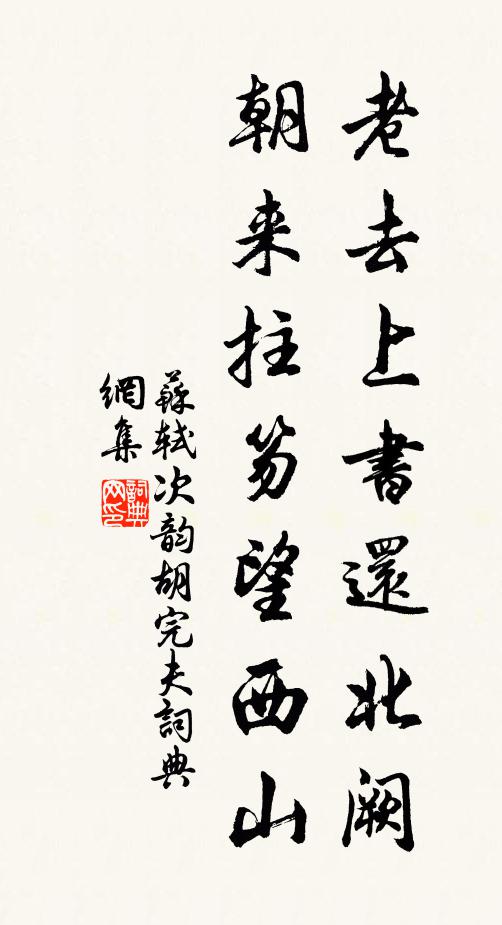 老去上書還北闕
朝来拄笏望西山
蘇軾次韵胡完夫詞典
網集
詞典網印